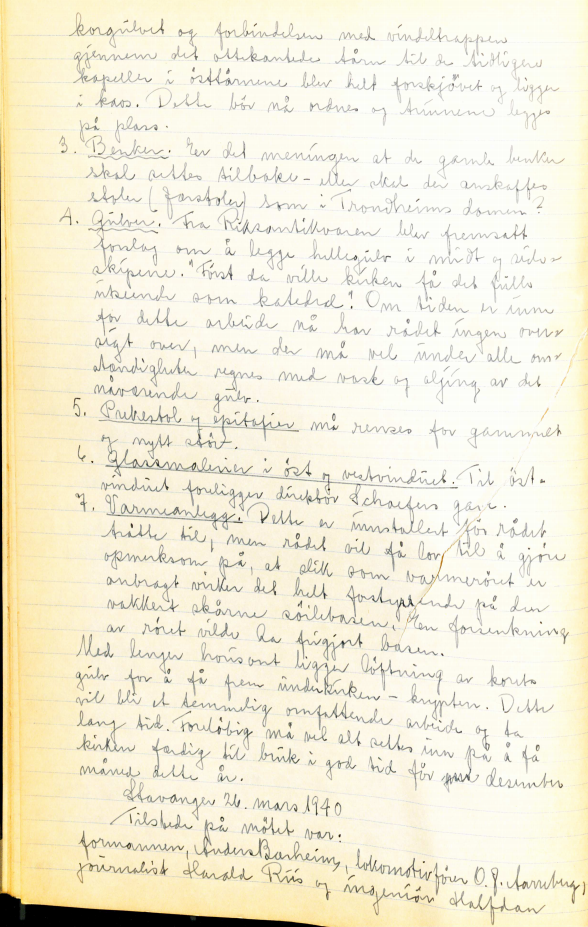 korgulvet og forbindelsen med vindeltrappen
gjennem det ottekantede tårn til de tidligere
kapeller i østtårnene blev helt forskjøvet og ligger
i kaos. Dette bør nå ordnes og trinnene legges
på plass.
3. Benker. Er det meningen at de gamle benker
skal settes tilbake - eller skal der anskaffes
stoler (Jærstoler) som i Trondheims domen?
4. Gulvet. Fra Riksantikvaren blev fremsatt
forslag om å legge hellegulv i midt og side-
skipene. "Først da ville kirken få det fulle
utseende som katedral". Om tiden er inne
for dette arbeide nå har rådet ingen over-
sigt over, men der må vel under alle om-
stendigheter regnes med vask og oljing av det
nåværende gulv.
5. Prekestol og epitafier må renses for gammelt
og nytt støv.
6. Glassmalerier i øst og vestvinduet. Til øst-
vinduet foreligger direktør Schaefers gave.
7. Varmeanlegg. Dette er innstallert før rådet
trådte til, men rådet vil få lov til å gjøre
opmerksom på, at slik som varmerøret er
anbragt virker det helt forstyrrende på den
vakkert skårne søilebasen. En forsenkning
av røret vilde ha frigjort basen.
Med lenger horisont ligger løftning av korets
gulv for å få frem underkirken - krypten. Dette
vil bli et temmelig omfattende arbeide og ta
lang tid. Foreløbig må vel alt settes inn på å få
kirken færdig til bruk i god tid før desember
måned dette år.
Stavanger 26. mars 1940
Tilstede på møtet var:
formannen, Anders Bærheim, lokomotivfører O. J. Aarreberg,
journalist Harald Riis og ingeniør Halfdan